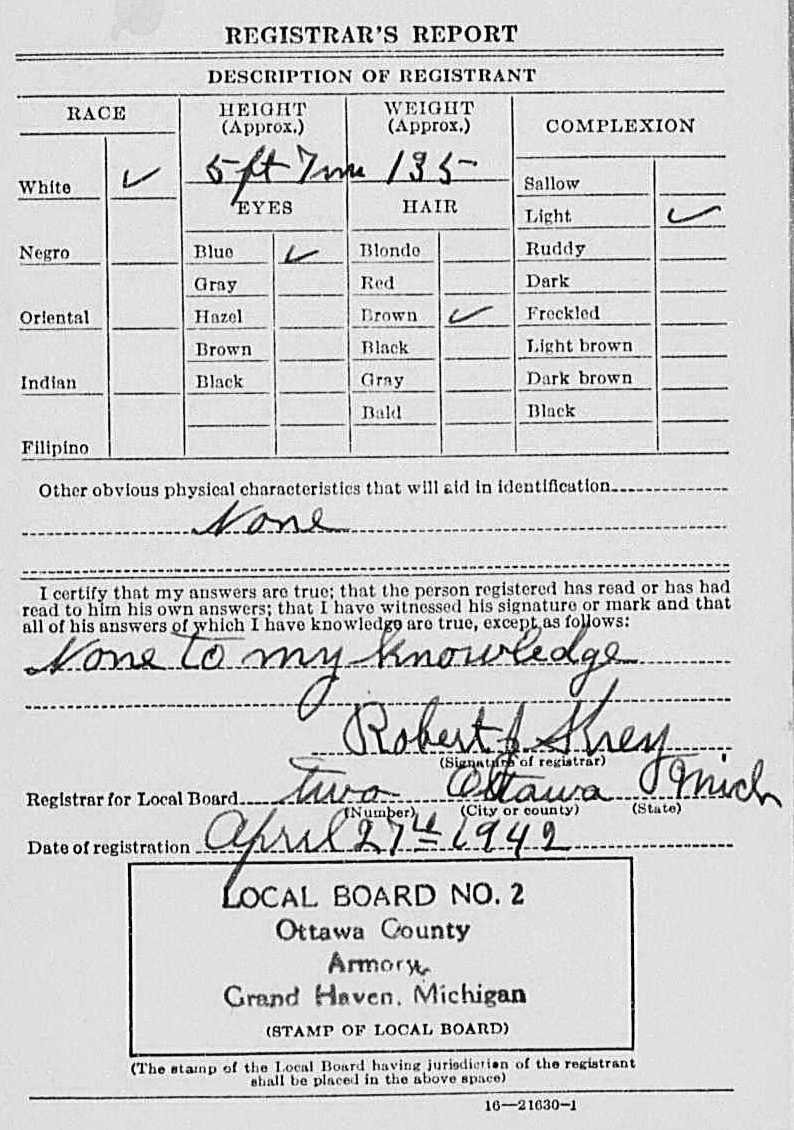 REGISTRAR'S REPORT
DESCRIPTION OF REGISTRANT
RACE
HEIGHT (Approx.)
WEIGHT (Approx.)
COMPLEXION
White ✓
5 ft 7 135
Sallow
EYES
HAIR
Light ✓
Negro
Blue ✓
Blonde
Ruddy
Gray
Red
Dark
Oriental
Hazel
Brown ✓
Freckled
Brown
Black
Light brown
Indian
Black
Gray
Dark brown
Bald
Black
Filipino
Other obvious physical characteristics that will aid in identification
None
I certify that my answers are true; that the person registered has read or has had
read to him his own answers; that I have witnessed his signature or mark and that
all of his answers of which I have knowledge are true, except as follows:
None to my knowledge
Robert J
(Signature of registrar)
Registrar for Local Board two Ottawa Mich
(Number) (City or county) (State)
Date of registration April 27th 1942
LOCAL BOARD NO. 2
Ottawa County
Armory
Grand Haven, Michigan
(STAMP OF LOCAL BOARD)
(The stamp of the Local Board having jurisdiction of the registrant
shall be placed in the above space)
16—21630-1